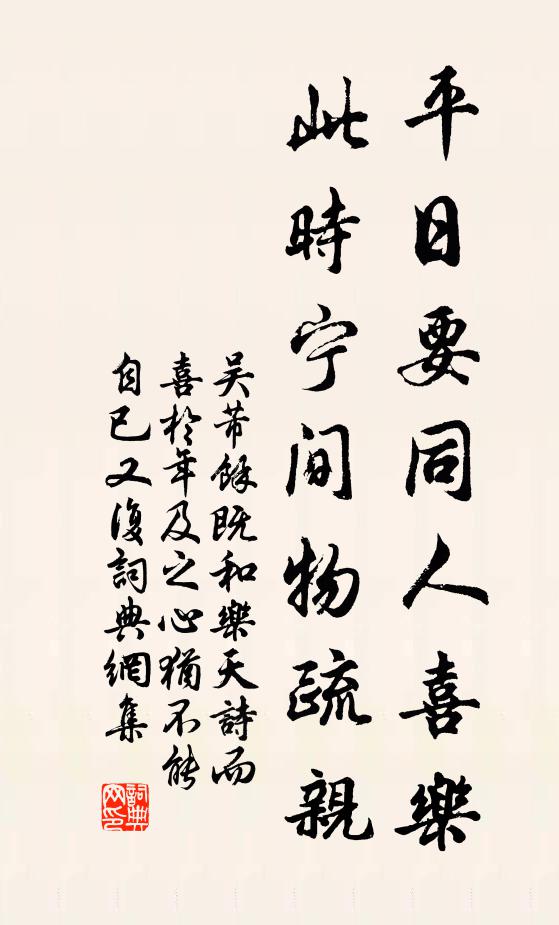 平日要同人喜樂
此時宁間物疏親
吴芾餘既和樂天詩而
喜於年及之心猶不能
自已又復詞典網集
詞典
网印